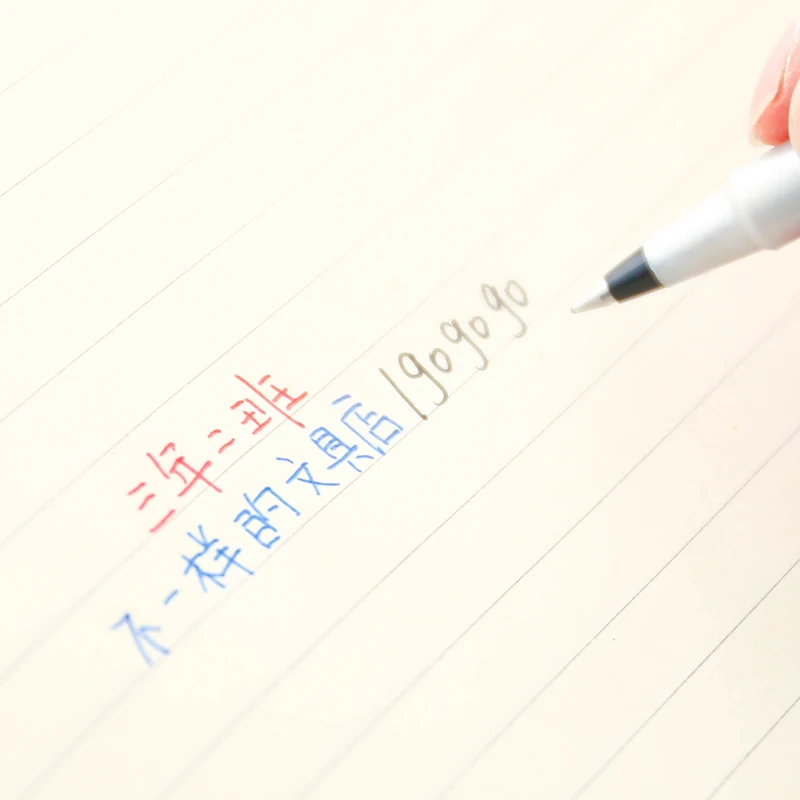 三年二班
不一样的文具店1909090